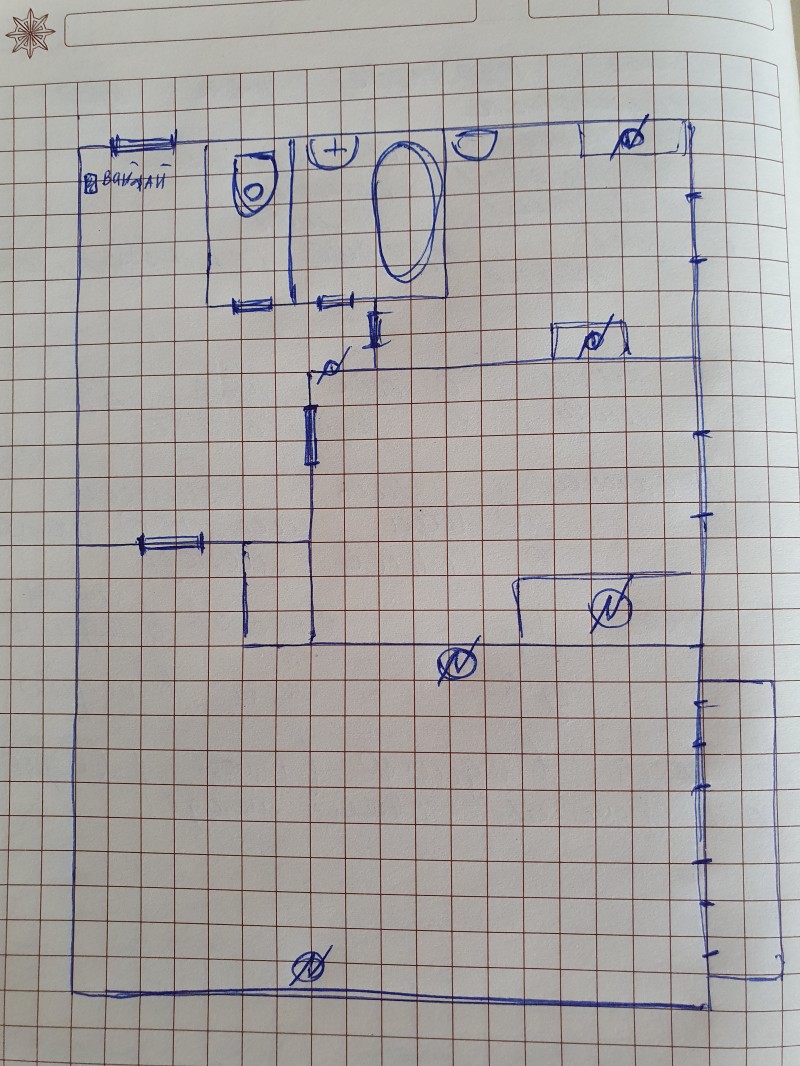 ВАЙФАЙ